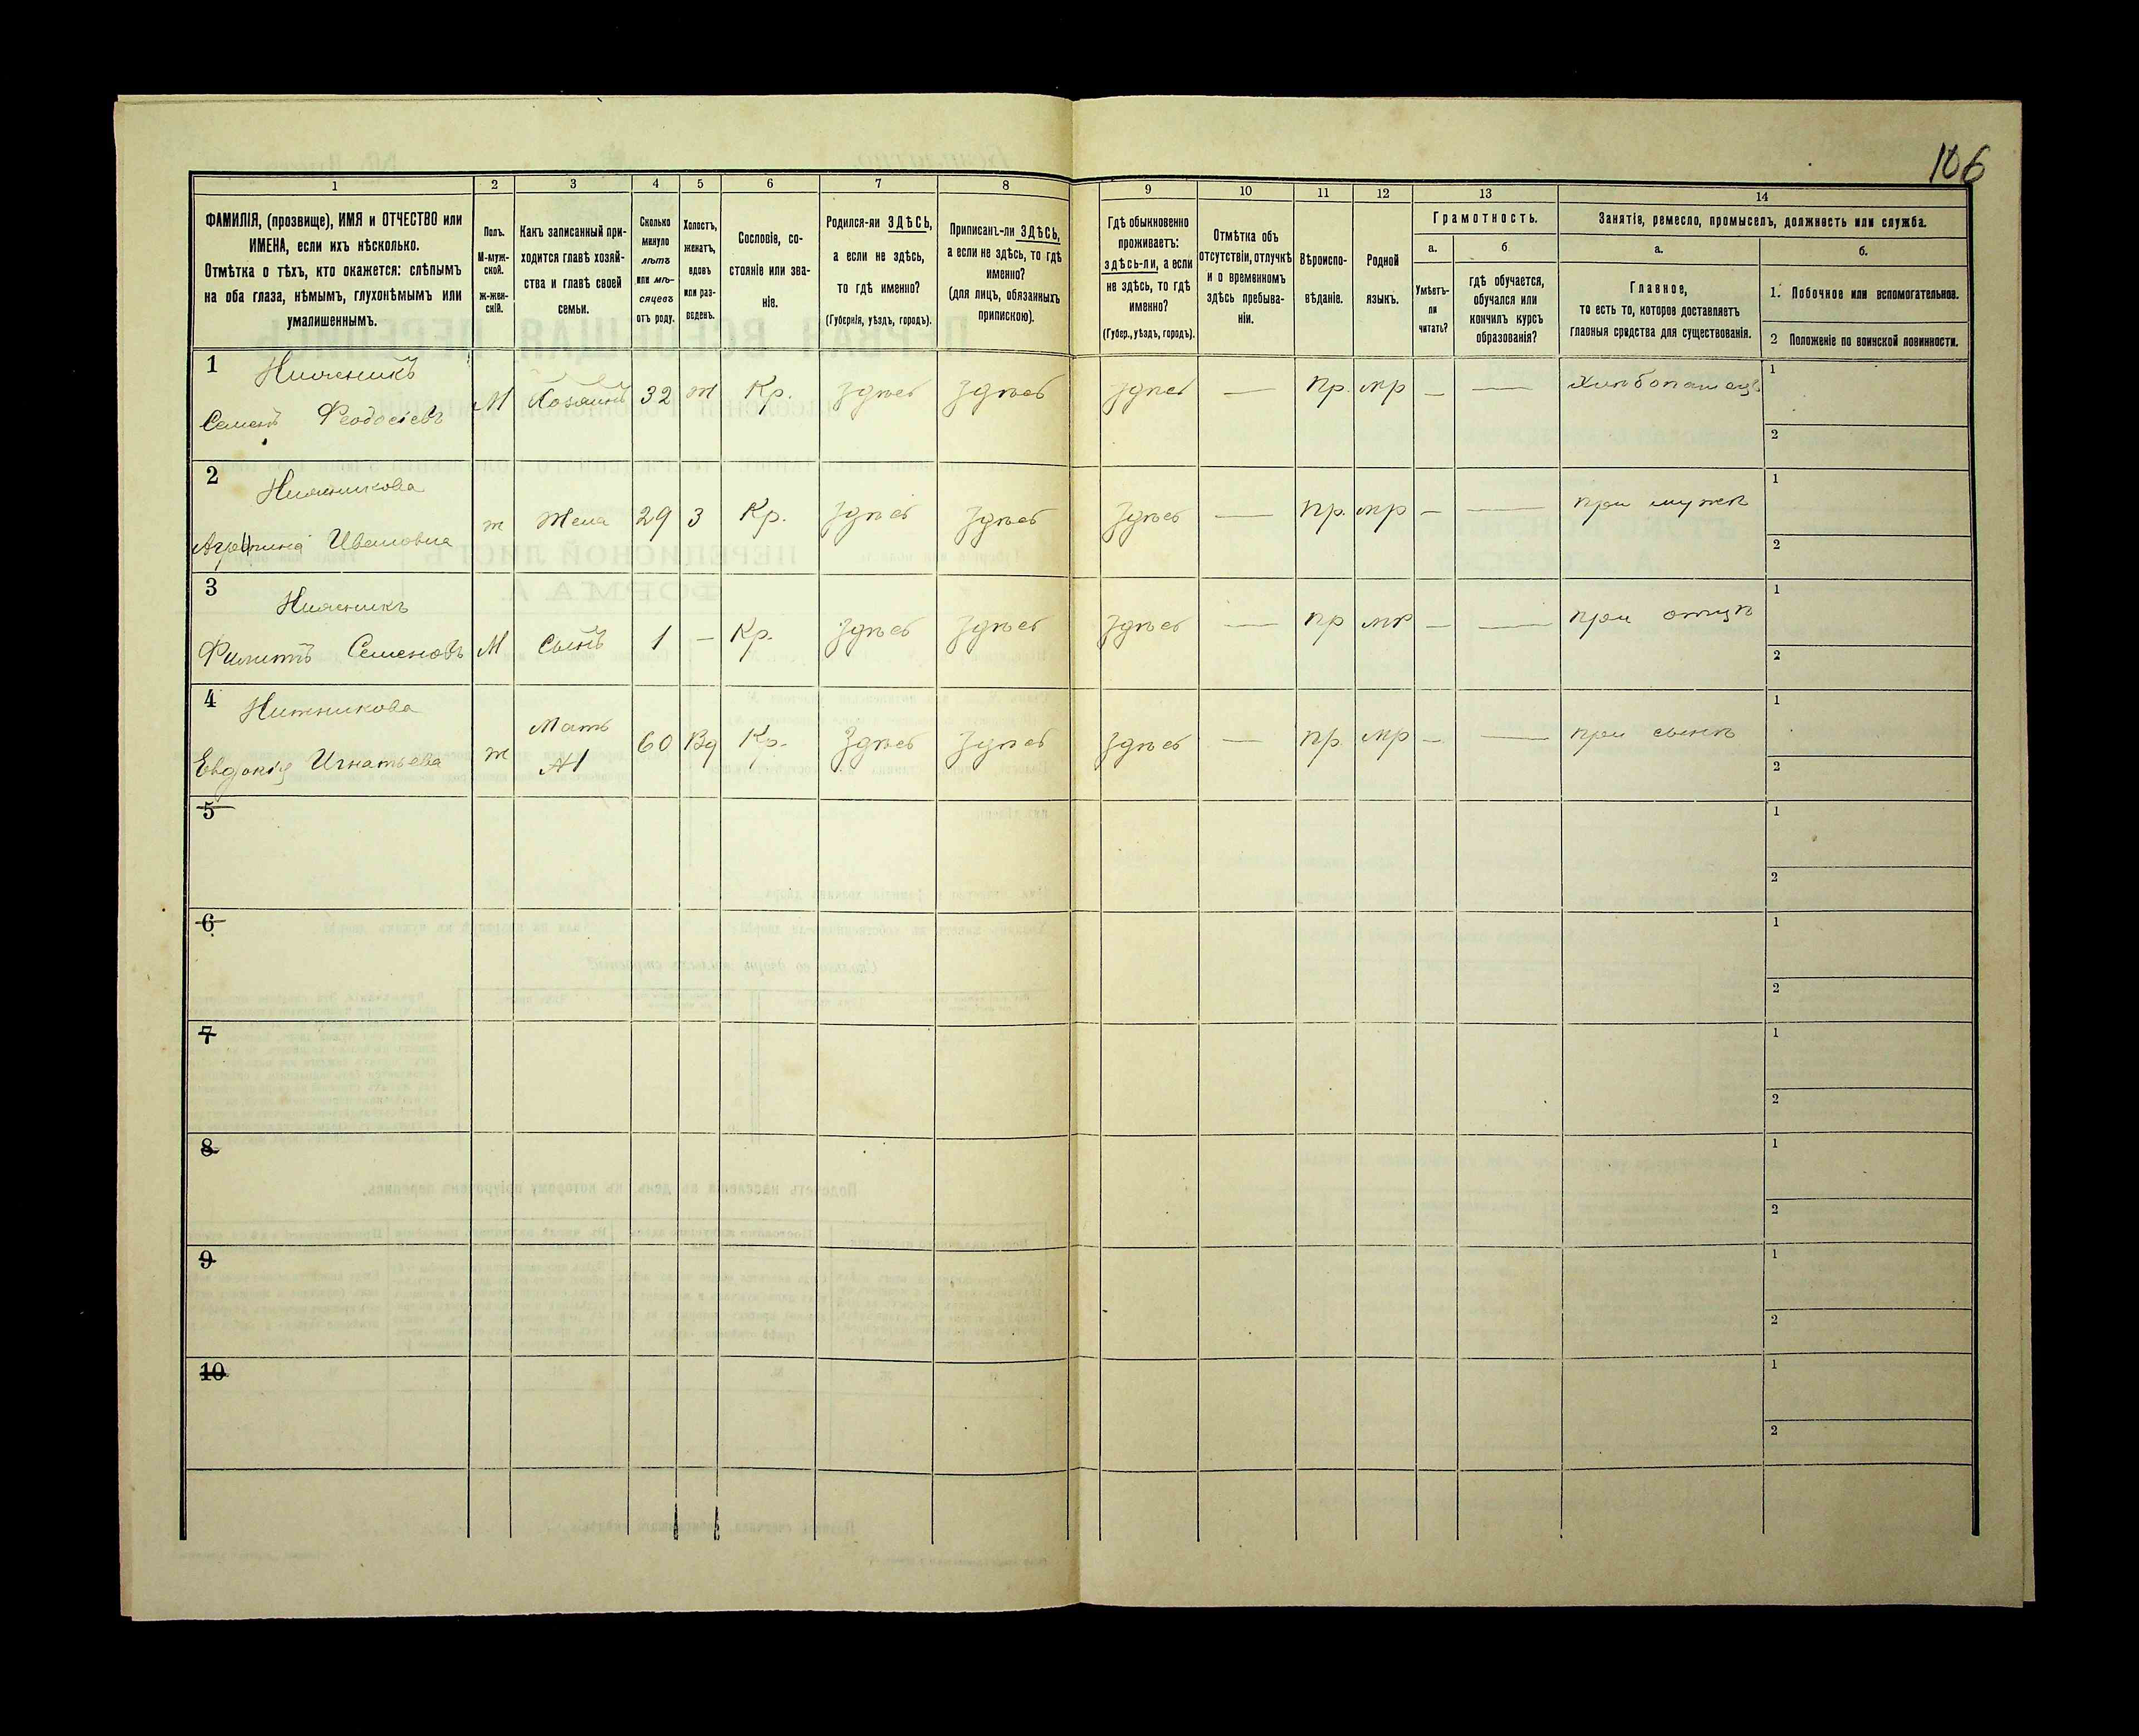 106
1 2 3 4 5 6 7 8 9 10 11 12 13 14
ФАМИЛІЯ, (прозвище), ИМЯ и ОТЧЕСТВО или
ИМЕНА, если ихъ нѣсколько.
Отмѣтка о тѣхъ, кто окажется: слѣпымъ
на оба глаза, нѣмымъ, глухонѣмымъ или
умалишеннымъ.
Полъ.
М-муж-
ской.
ж-жен-
скій.
Какъ записанный при-
ходится главѣ хозяй-
ства и главѣ своей
семьи.
Сколько
минуло
лѣтъ
или мѣ-
сяцевъ
отъ роду.
Холостъ,
женатъ,
вдовъ
или раз-
веденъ.
Сословіе, со-
стояніе или зва-
ніе.
Родился-ли ЗДѢСЬ,
а если не здѣсь,
то гдѣ именно?
(Губернія, уѣздъ, городъ).
Приписанъ-ли ЗДѢСЬ,
а если не здѣсь, то гдѣ
именно?
(для лицъ, обязанныхъ
припискою).
Гдѣ обыкновенно
проживаетъ:
здѣсь-ли, а если
не здѣсь, то гдѣ
именно?
(Губер., уѣздъ, городъ).
Отмѣтка объ
отсутствіи, отлучкѣ
и о временномъ
здѣсь пребыва-
ніи.
Вѣроиспо-
вѣданіе.
Родной
языкъ.
Грамотность.
а.
Умѣетъ-
ли
читать?
б.
гдѣ обучается,
обучался или
кончилъ курсъ
образованія?
Занятіе, ремесло, промыселъ, должность или служба.
а.
Главное,
то есть то, которое доставляетъ
главныя средства для существованія.
б.
1. Побочное или вспомогательное.
2 Положеніе по воинской повинности.
1 Нижникъ
Семенъ Феодосіевъ М Хозяинъ 32 ж Кр. Здѣсь Здѣсь Здѣсь — Пр. мр — — Хлѣбопашецъ 1
2
2 Нижникова
Агрипина Ивановна ж Жена 29 З Кр. Здѣсь Здѣсь Здѣсь — Пр. мр — — при мужѣ 1
2
3 Нижникъ
Филиппъ Семеновъ М Сынъ 1 — Кр. Здѣсь Здѣсь Здѣсь — пр мр — — при отцѣ 1
2
4 Нижникова
Евдокія Игнатьева ж Мать 60 Вд Кр. Здѣсь Здѣсь Здѣсь — пр. мр — — при сынѣ 1
№1
2
5 1
2
6 1
2
7 1
2
8 1
2
9 1
2
10 1
2